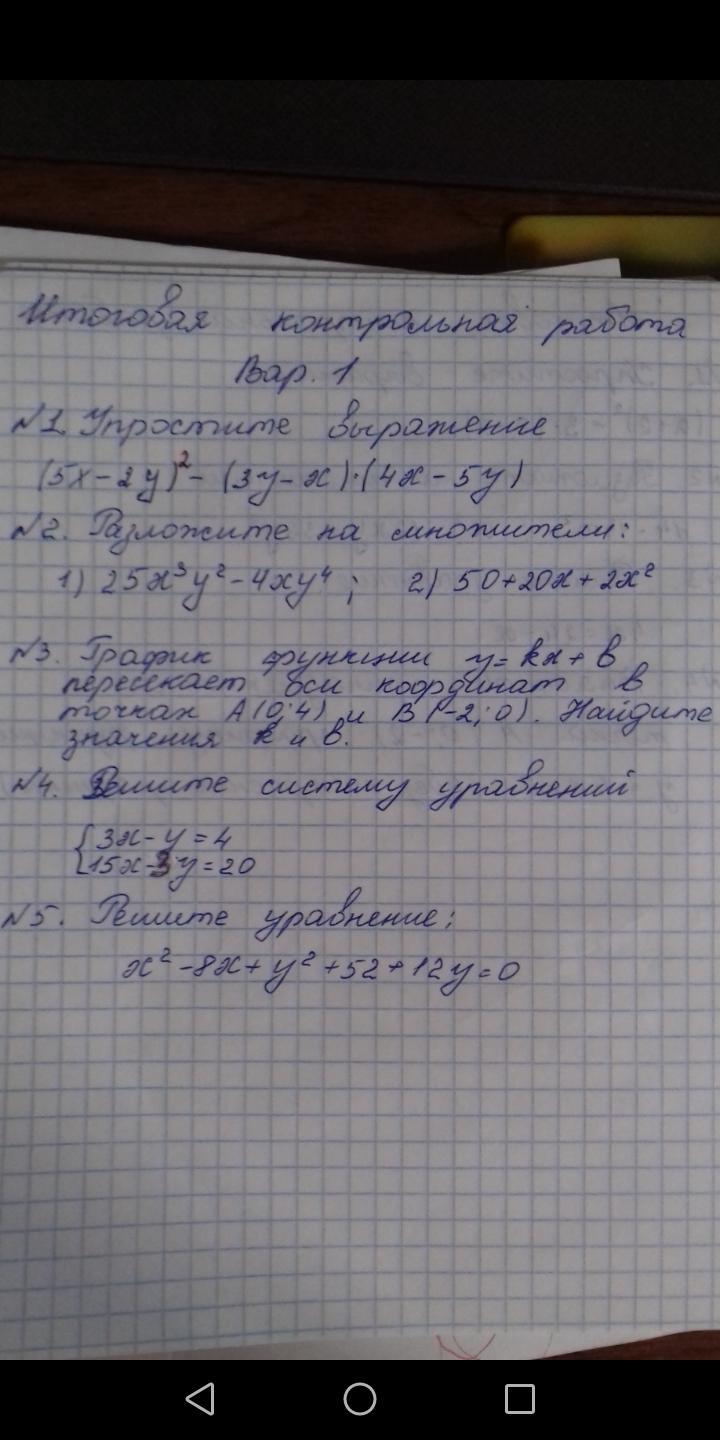 Итоговая контрольная работа
Вар. 1
№1. Упростите выражение
(5x-2y)²-(3y-x)·(4x-5y)
№2. Разложите на множители:
1) 25x³y²-4xy⁴; 2) 50+20x+2x²
№3. График функции y=kx+b
пересекает оси координат в
точках A(0;4) и B(-2;0). Найдите
значения k и b.
№4. Решите систему уравнений
{3x-y=4
{15x-3y=20
№5. Решите уравнение:
x²-8x+y²+52+12y=0